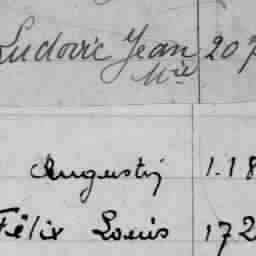 Ludovic Jean 207
Mie
Augustin 1.18
Félix Louis 172